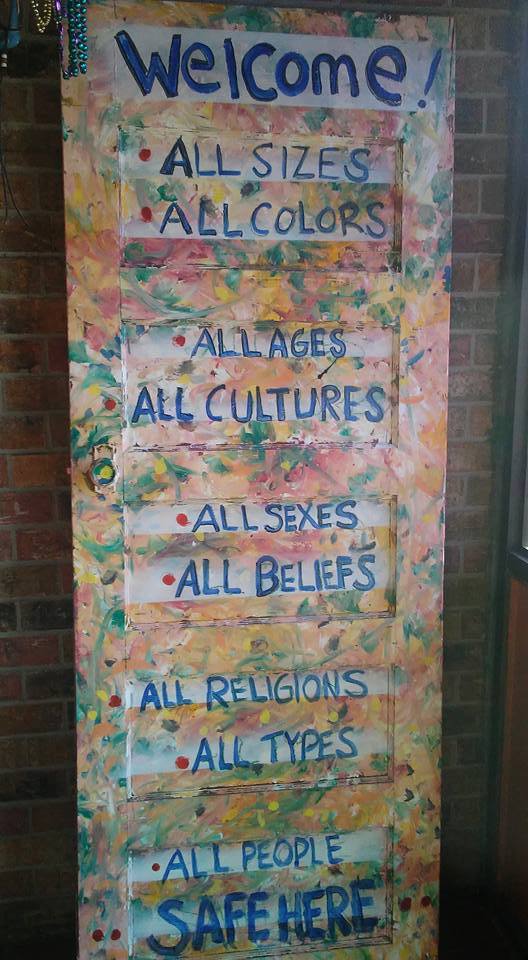 Welcome!
• ALL SIZES
• ALL COLORS
• ALL AGES
• ALL CULTURES
• ALL SEXES
• ALL BELIEFS
• ALL RELIGIONS
• ALL TYPES
• ALL PEOPLE
SAFE HERE